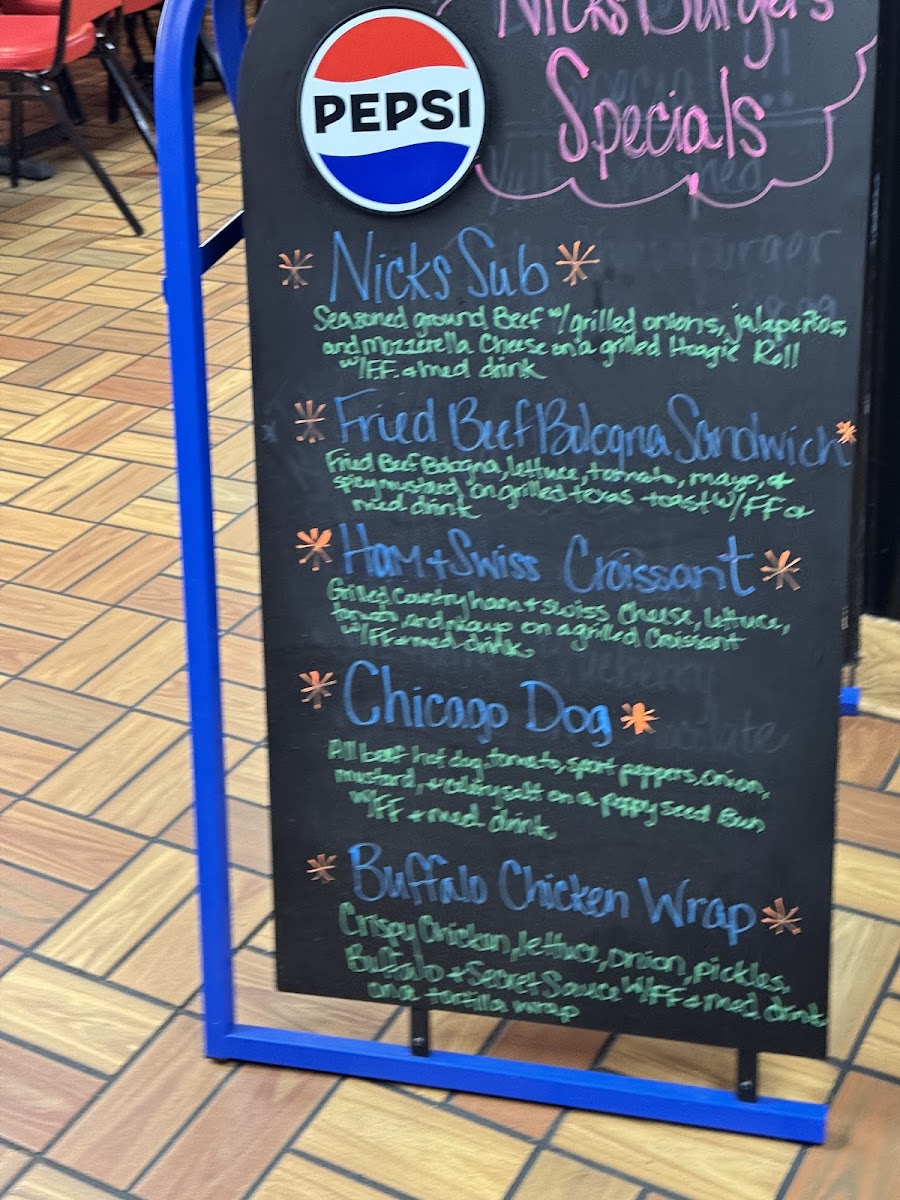 PEPSI
Nicks Burgers
Specials
Nicks Sub
Seasoned ground Beef w/grilled onions, jalapeños,
and mozzerella Cheese on a grilled Hoagie Roll
w/FF. + med drink
Fried Beef Bologna Sandwich
Fried Beef Bologna, lettuce, tomato, mayo, or
spicy mustard, on grilled texas toast w/FF or
med drink
Ham + Swiss Croissant
Grilled Country ham + swiss Cheese, lettuce,
tomato, and mayo on a grilled Croissant
w/FF + med drink
Chicago Dog
All beef hot dog, tomato, sport peppers, onion,
mustard, + celery salt on a poppy seed Bun
w/FF + med drink
Buffalo Chicken Wrap
Crispy Chicken, lettuce, onion, pickles,
Buffalo + Secret Sauce w/FF + med drink
on a tortilla wrap